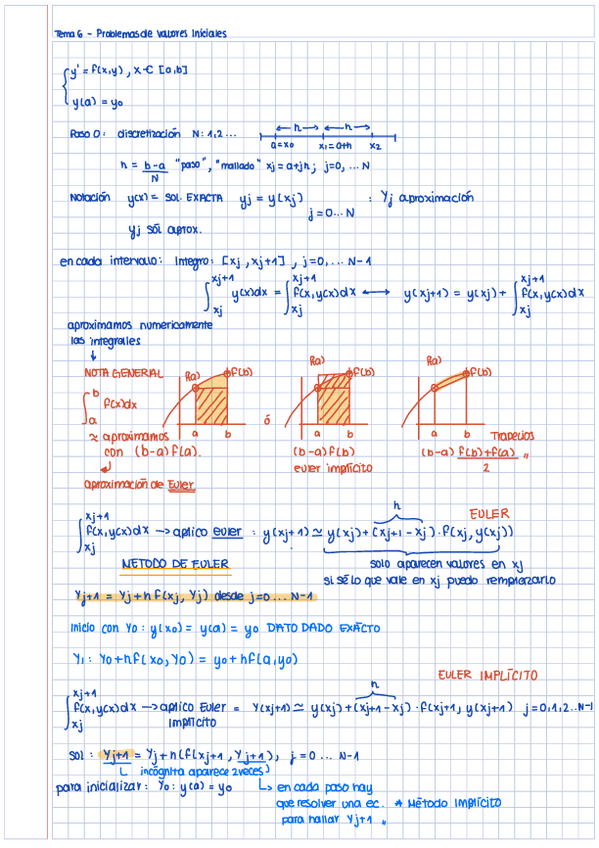 Tema 6 - Problemas de valores Iniciales
y' = f(x,y) , x ∈ [a,b]
y(a) = y0
Paso 0: discretización N: 1,2...
h h
a=x0 x1=a+h x2
h = b-a/N "paso", "mallado" xj=a+jh; j=0,...N
Notación y(x)= sol. EXACTA yj = y(xj) : Yj aproximación
j=0...N
Yj sól aprox.
en cada intervalo: Integro: [xj, xj+1], j=0,...N-1
∫xj^xj+1 y(x)dx = ∫xj^xj+1 f(x,y(x)dx ⟷ y(xj+1) = y(xj)+ ∫xj^xj+1 f(x,y(x)dx
aproximamos numericamente
las integrales
↓
NOTA GENERAL
f(a) f(b) f(a) f(b) f(a) f(b)
∫a^b f(x)dx
ó
a b a b a b Trapecios
≈ aproximamos
con (b-a)f(a). (b-a)f(b) (b-a) f(b)+f(a)/2 "
euler implícito
aproximación de Euler
h EULER
∫xj^xj+1 f(x,y(x)dx → aplico euler : y(xj+1) ≃ y(xj)+(xj+1 - xj)·f(xj,y(xj))
METODO DE EULER
solo aparecen valores en xj
si sé lo que vale en xj puedo remplazarlo
Yj+1 = Yj+h f(xj, Yj) desde j=0...N-1
Inicio con Y0: y(x0) = y(a) = y0 DATO DADO EXACTO
Y1: Y0+hf(x0,Y0) = y0+hf(a,y0)
EULER IMPLÍCITO
h
∫xj^xj+1 f(x,y(x)dx → aplico Euler = Y(xj+1) ≃ y(xj)+(xj+1-xj)·f(xj+1,y(xj+1) j=0,1,2..N-1
IMPLÍCITO
sol: Yj+1 = Yj+h(f(xj+1, Yj+1), j=0...N-1
incógnita aparece 2 veces
para inicializar: Y0: y(a) = y0 ↳ en cada paso hay
que resolver una ec. * Método Implícito
para hallar Yj+1 "